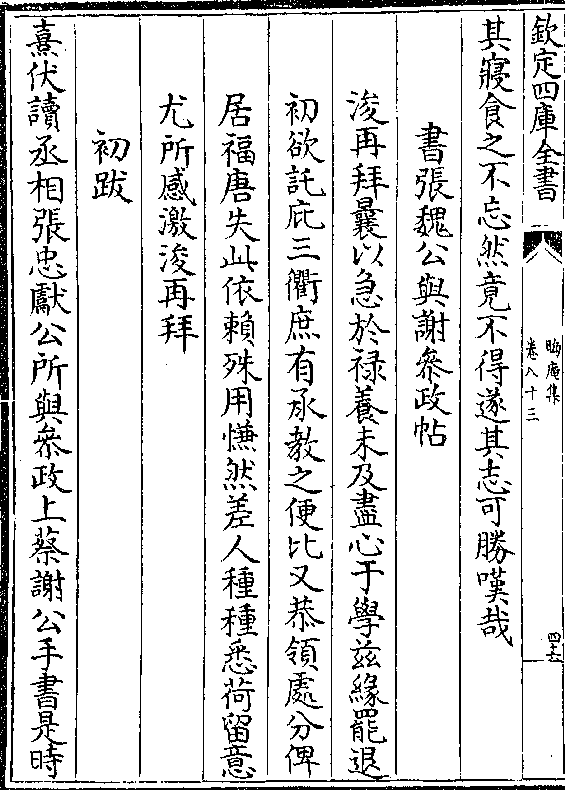 欽定四庫全書
晦庵集
卷八十三
其寢食之不忘然竟不得遂其志可勝嘆哉
書張魏公與謝叅政帖
浚再拜曩以急於禄養未及盡心于學兹緣罷退
初欲託庇三衢庶有承教之便比又恭領處分俾
居福唐失此依賴殊用慊然差人種種悉荷留意
尤所感激浚再拜
初跋
熹伏讀丞相張忠獻公所與叅政上蔡謝公手書是時